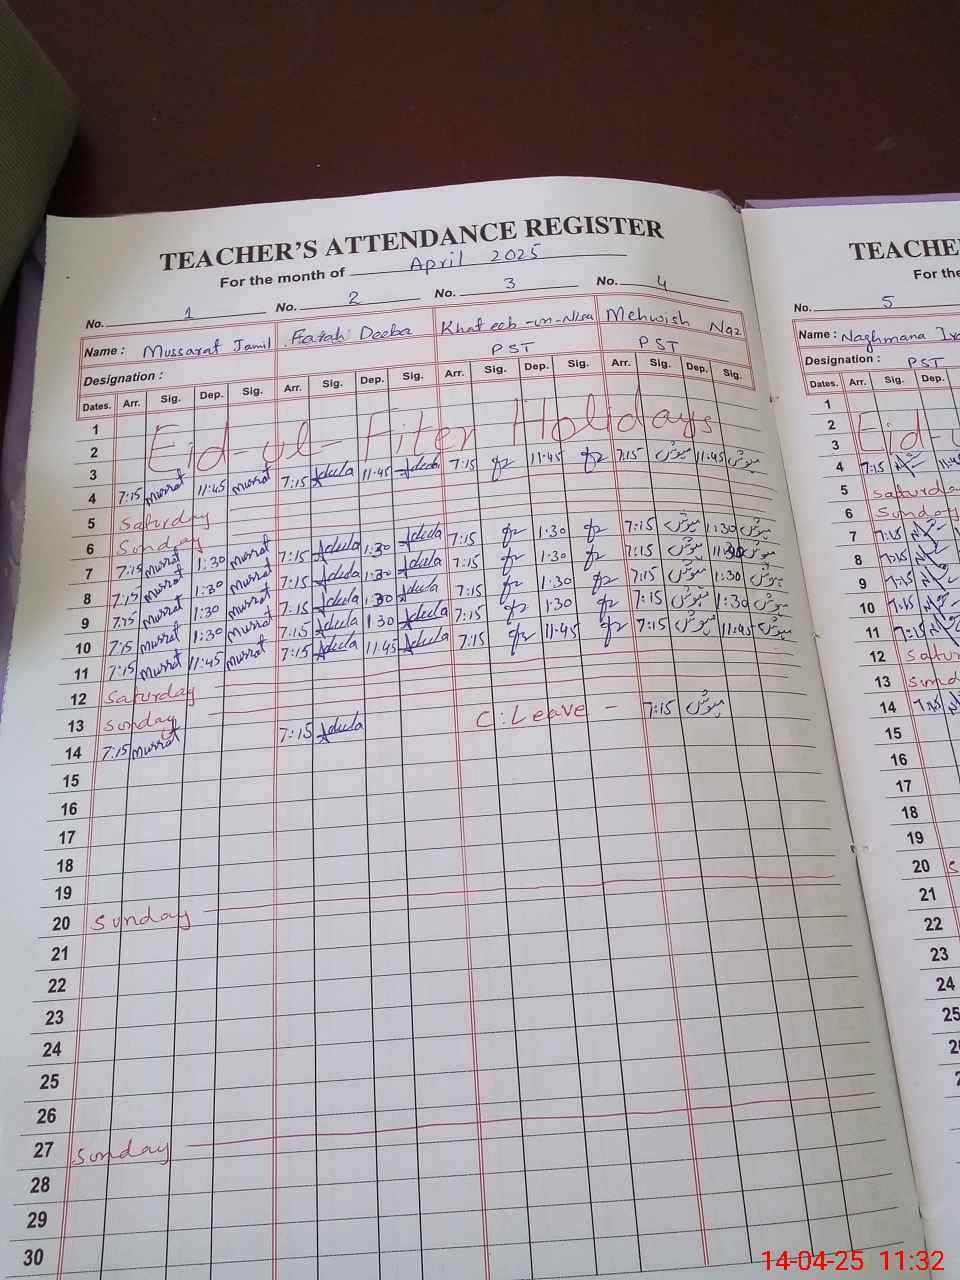 TEACHER'S ATTENDANCE REGISTER
For the month of April 2025
No. 1 No. 2 No. 3 No. 4
Name : Mussarat Jamil Farah Deeba Khateeb-un-Nisa Mehwish Naz
Designation : PST PST
Dates. Arr. Sig. Dep. Sig. Arr. Sig. Dep. Sig. Arr. Sig. Dep. Sig. Arr. Sig. Dep. Sig.
1
2 Eid-ul-Fiter Holidays
3
4 7:15 Mussrat 11:45 Mussrat 7:15 11:45 7:15 11:45 7:15 مہوش 11:45 مہوش
5 Saturday
6 Sunday
7 7:15 Mussrat 1:30 Mussrat 7:15 1:30 7:15 1:30 7:15 مہوش 1:30 مہوش
8 7:15 Mussrat 1:30 Mussrat 7:15 1:30 7:15 1:30 7:15 مہوش مہوش
9 7:15 Mussrat 1:30 Mussrat 7:15 1:30 7:15 1:30 7:15 مہوش 1:30 مہوش
10 7:15 Mussrat 1:30 Mussrat 7:15 1:30 7:15 1:30 7:15 مہوش 1:30 مہوش
11 7:15 Mussrat 11:45 Mussrat 7:15 11:45 7:15 11:45 7:15 مہوش 11:45 مہوش
12 Saturday
13 Sunday
14 7:15 Mussrat 7:15 C:Leave - 7:15 مہوش
15
16
17
18
19
20 Sunday
21
22
23
24
25
26
27 Sunday
28
29
30
TEACHE
For the
No. 5
Name : Naghmana
Designation : PST
Dates. Arr. Sig. Dep.
1
2 Eid-u
3
4 7:15 11:45
5 Saturda
6 Sunday
7 7:15
8 7:15
9 7:15
10 7:15
11 7:15
12 Satur
13 Sund
14 7:15
15
16
17
18
19
20 S
21
22
23
24
25
14-04-25 11:32